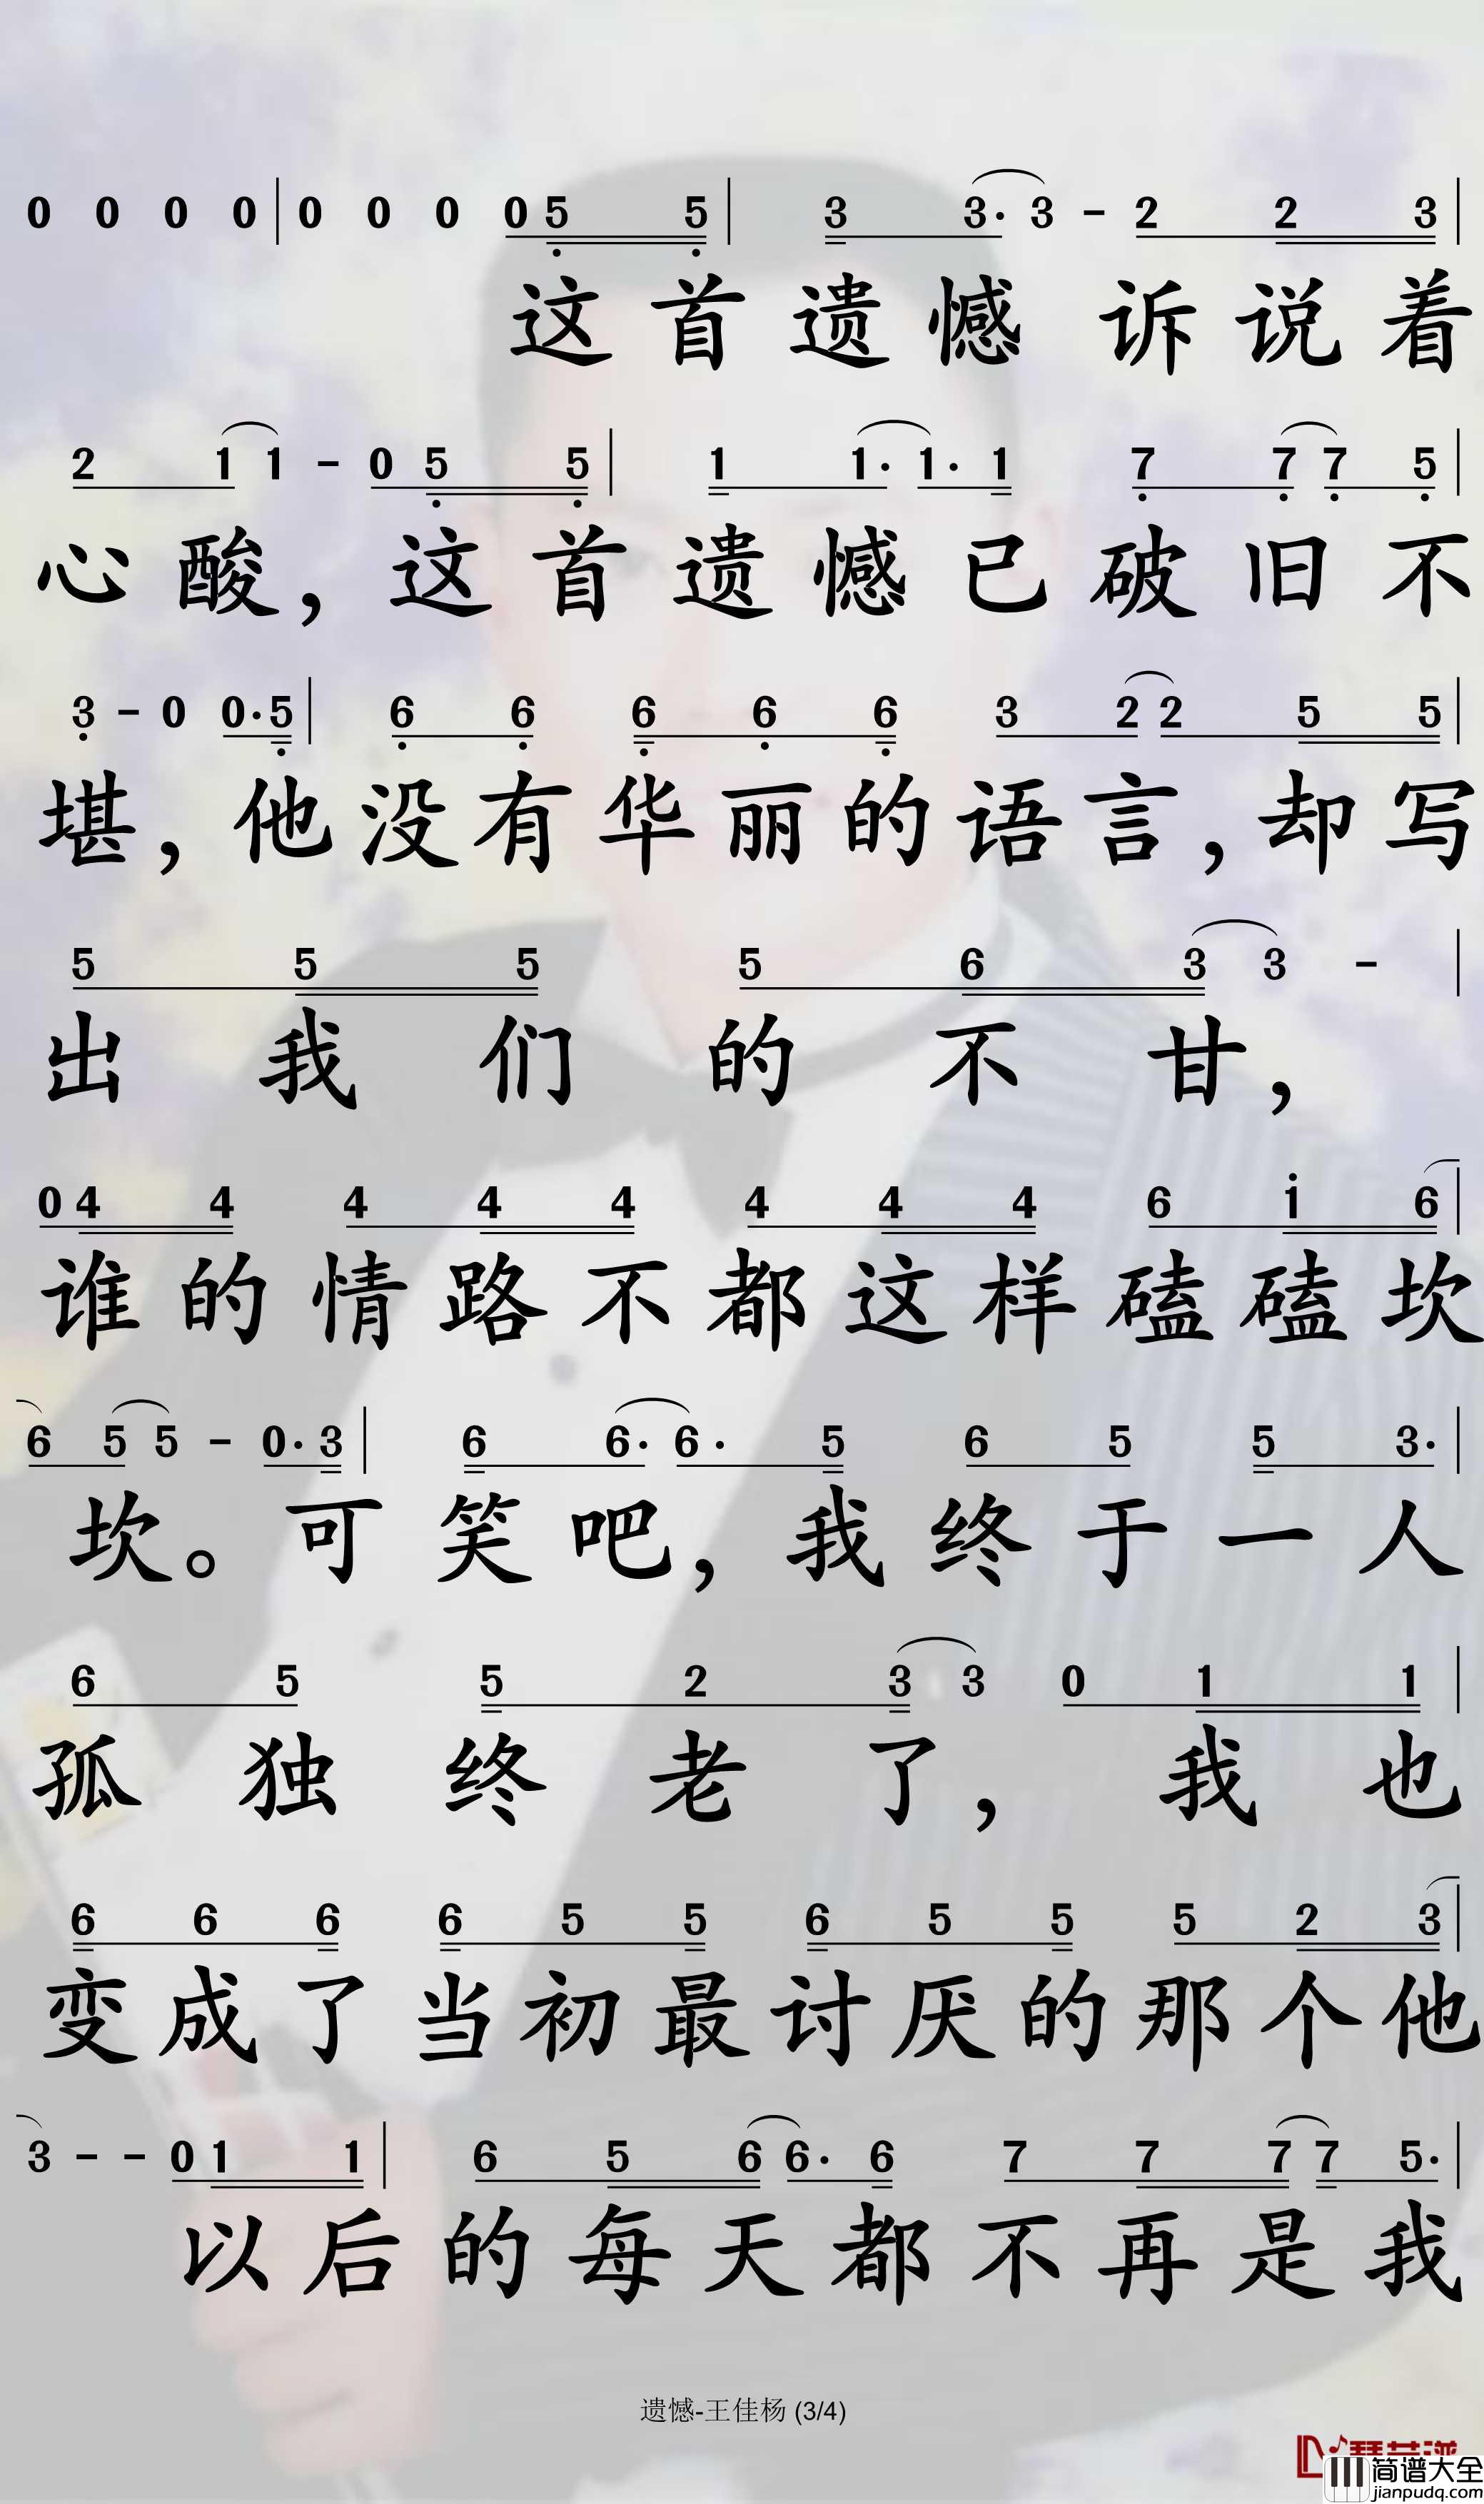 0 0 0 0 | 0 0 0 0 5 5 | 3 3· 3 - 2 2 3 |
这首遗憾 诉说着
2 1 1 - 0 5 5 | 1 1· 1· 1 7 7 7 5 |
心酸，这首遗憾已破旧不
3 - 0 0· 5 | 6 6 6 6 6 3 2 2 5 5 |
堪，他没有华丽的语言，却写
5 5 5 5 6 3 3 - |
出我们的不甘，
0 4 4 4 4 4 4 4 4 6 i 6 |
谁的情路不都这样磕磕坎
6 5 5 - 0· 3 | 6 6· 6· 5 6 5 5 3· |
坎。可笑吧，我终于一人
6 5 5 2 3 3 0 1 1 |
孤独终老了，我也
6 6 6 6 5 5 6 5 5 5 2 3 |
变成了当初最讨厌的那个他
3 - - 0 1 1 | 6 5 6 6· 6 7 7 7 7 5· |
以后的每天都不再是我
遗憾-王佳杨 (3/4)
简谱大全
jianpudq.com